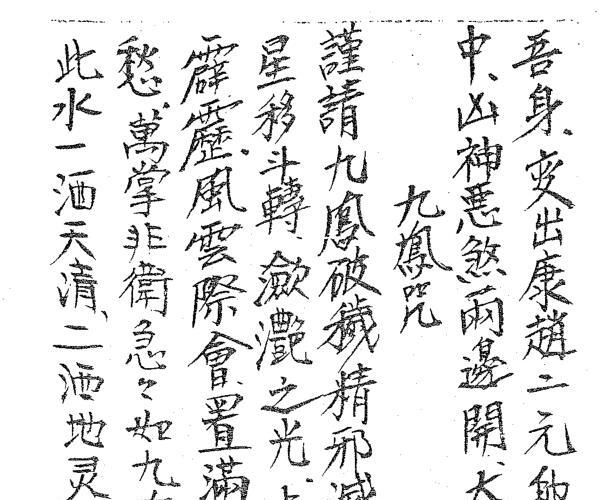 吾身、变出康趙二元帥
中、凶神恶煞兩邊開、大
九鳳咒
謹請九鳳破穢精邪滅
星移斗轉、瀲灧之光、
霹靂、風雲際會、置滿
愁、萬掌非衛急々如九
此水一洒天清、二洒地灵